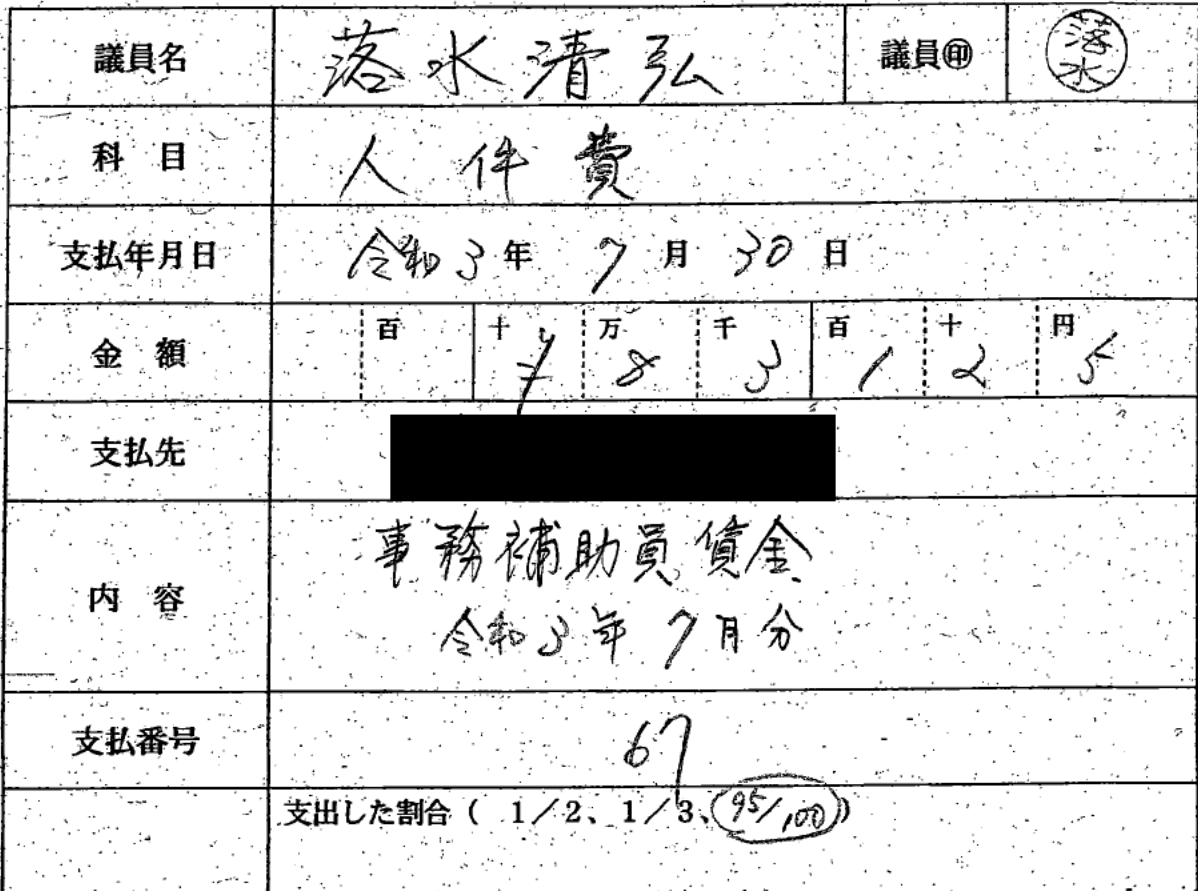 議員名 落水清弘 議員㊞ 落水
科 目 人件費
支払年月日 令和3年 7月 30日
金 額 百 十 ¥ 万 8 千 3 百 1 十 2 円 5
支払先
内 容 事務補助員賃金
令和3年7月分
支払番号 67
支出した割合( 1/2、1/3、95/100)